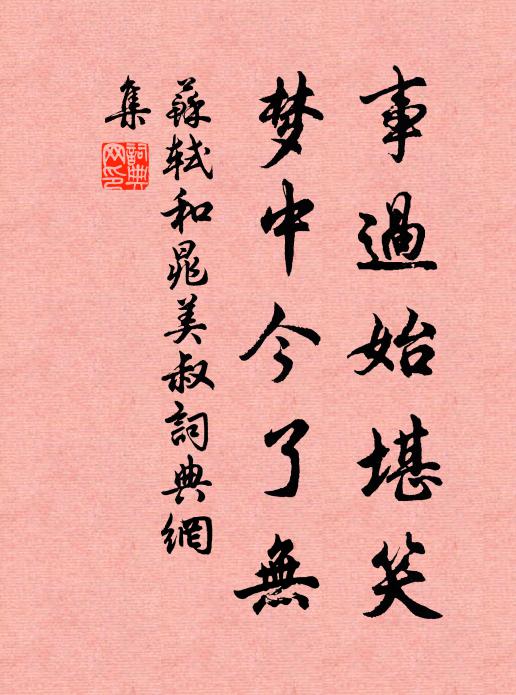 事過始堪笑
梦中今了無
蘇軾和晁美叔詞典網
集
詞典
网印